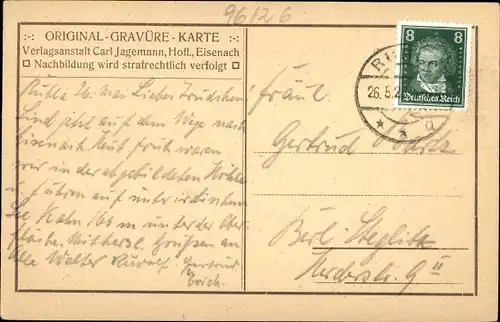 96126
·:· ORIGINAL-GRAVÜRE-KARTE ·:·
Verlagsanstalt Carl Jagemann, Hofl., Eisenach
Nachbildung wird strafrechtlich verfolgt
8 8
Deutsches Reich
26.5.2
Ruhla 26. Mai Liebes Trudchen
Sind jetzt auf dem Wege nach
Eisenach. Heut früh waren
wir in der abgebildeten Höhle
u. fuhren auf unterirdischem
See Kahn 166 m unter der Ober-
fläche. Mit herzl. Grüßen an
alle Walter Rudolf Gertrud
Fräul.
Gertrud
Berl. Steglitz
Herderstr. 9 II